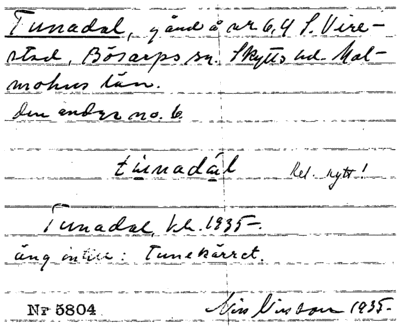 Tunadal, gård å nr 6, 4 S. Vire-
stad, Bösarps sn. Skytts hd. Mal-
möhus län.
den endre no. 6
túnadál Rel. nytt!
Tunadal, kh. 1935.
äng intill: Tunekärret.
Nr 5804 Nils Nilsson 1935.